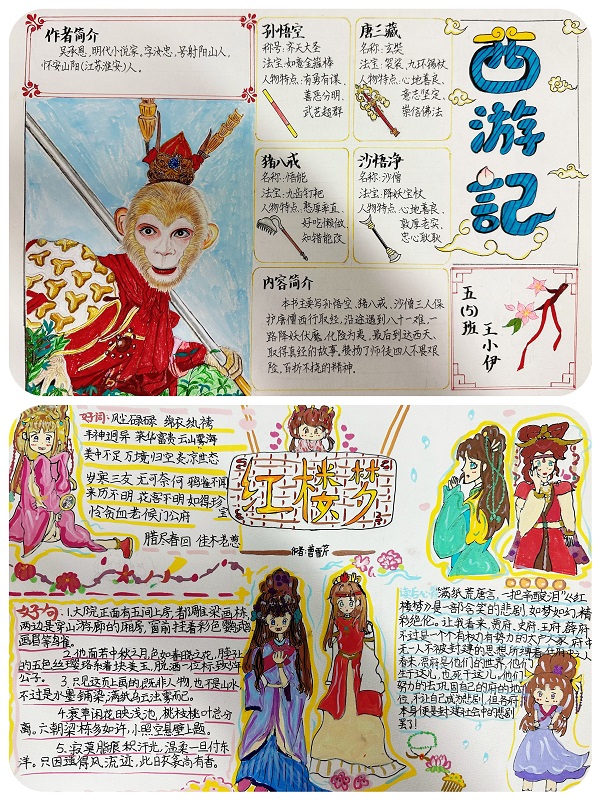 作者简介
吴承恩,明代小说家,字汝忠,号射阳山人,
怀安山阳(江苏淮安)人。
孙悟空
称号:齐天大圣
法宝:如意金箍棒
人物特点:有勇有谋、
善恶分明、
武艺超群
唐三藏
名称:玄奘
法宝:袈裟、九环锡杖
人物特点:心地善良、
意志坚定、
崇信佛法
猪八戒
名称:悟能
法宝:九齿钉耙
人物特点:憨厚率直、
好吃懒做、
知错能改
沙悟净
名称:沙僧
法宝:降妖宝杖
人物特点:心地善良、
敦厚老实、
忠心耿耿
内容简介
本书主要写孙悟空、猪八戒、沙僧三人保
护唐僧西行取经,沿途遇到八十一难,一
路降妖伏魔,化险为夷,最后到达西天、
取得真经的故事,赞扬了师徒四人不畏艰
险,百折不挠的精神。
西游記
五(5)班
王小伊
好词:风尘碌碌 锦衣纨绔
丰神迥异 荣华富贵 云山雾海
美中不足 万境归空 炎凉世态
岁寒三友 无可奈何 鸦雀不闻
来历不明 花容不明 如得珍宝
恰贪血老 候门公府
腊尽春回 佳木茏葱
红楼梦
作者:曹雪芹
好句:1.大院正面有五间上房,都雕梁画栋,
两边是穿山游廊的厢房,窗前挂着彩色鹦鹉
画眉等鸟雀。
2.他面若中秋之月,色如春晓之花,脖子上
的五色丝璎珞系着块美玉,脱洒一位标致少年
公子。
3.只见这页上画的既非人物,也不是山水,
不过是水墨铺染,满纸乌云浊雾而已。
4.衰草闲花映浅池,桃枝桃叶总分
离。六朝梁栋多如许,小照空悬壁上题。
5.寂寞脂痕积汗光,温柔一旦付东
洋。只因遗得风流迹,此日衣裳尚有香。
"满纸荒唐言,一把辛酸泪"《红
楼梦》是一部含笑的悲剧,如梦如幻,精
彩绝伦。让我看来,贾府,史府,王府,薛府
不过是一个个有权力有势力的大户人家,府中
无一人不被封建的思想所缚着
看来,贾府是他们的世界,他们
生于这儿,也死于这儿。他们
努力的去巩固自己的府的地
位,不让自己成为悲剧,但各府
本身便是封建社会中的悲剧
罢了!